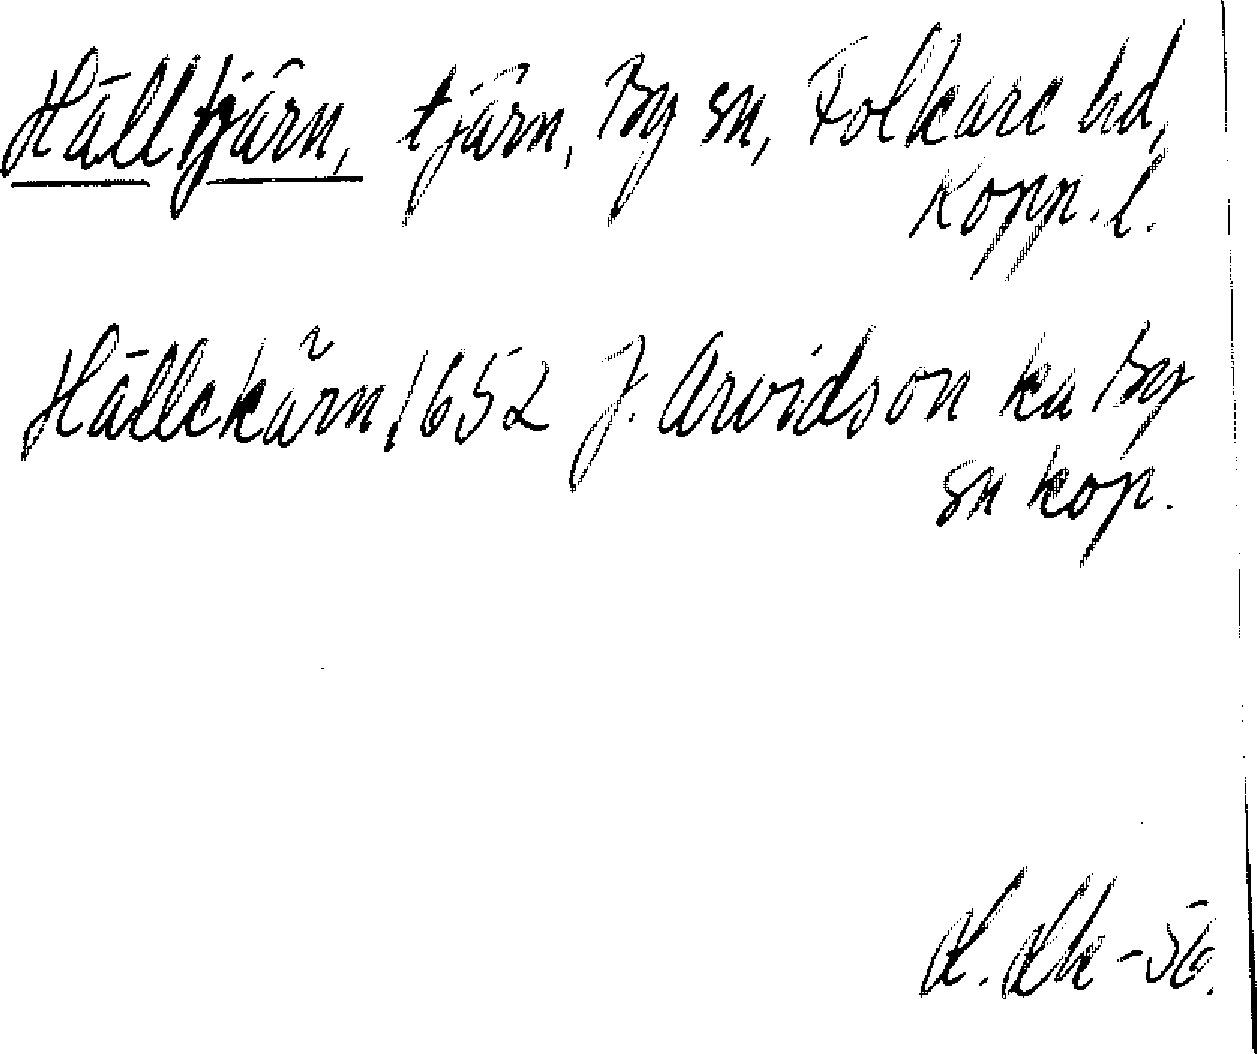 Hälltjärn, tjärn, By sn, Folkare hd,
Kopp. l.
Hällekärn 1652 J. Arvidson ka By
sn kop.